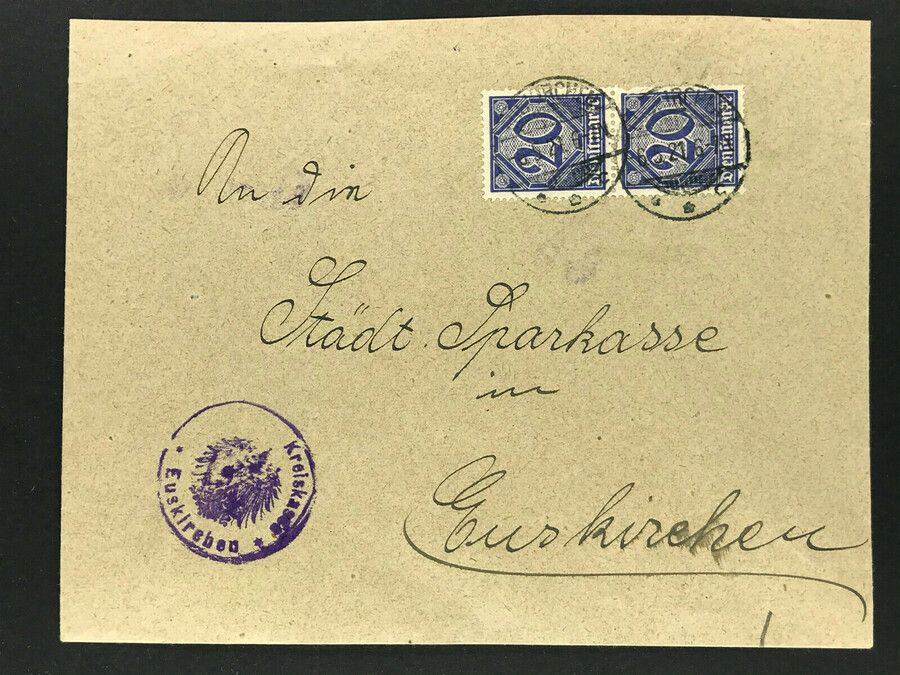 20 20
An die
Städt. Sparkasse
in
Euskirchen
Kreiskasse
* Euskirchen *